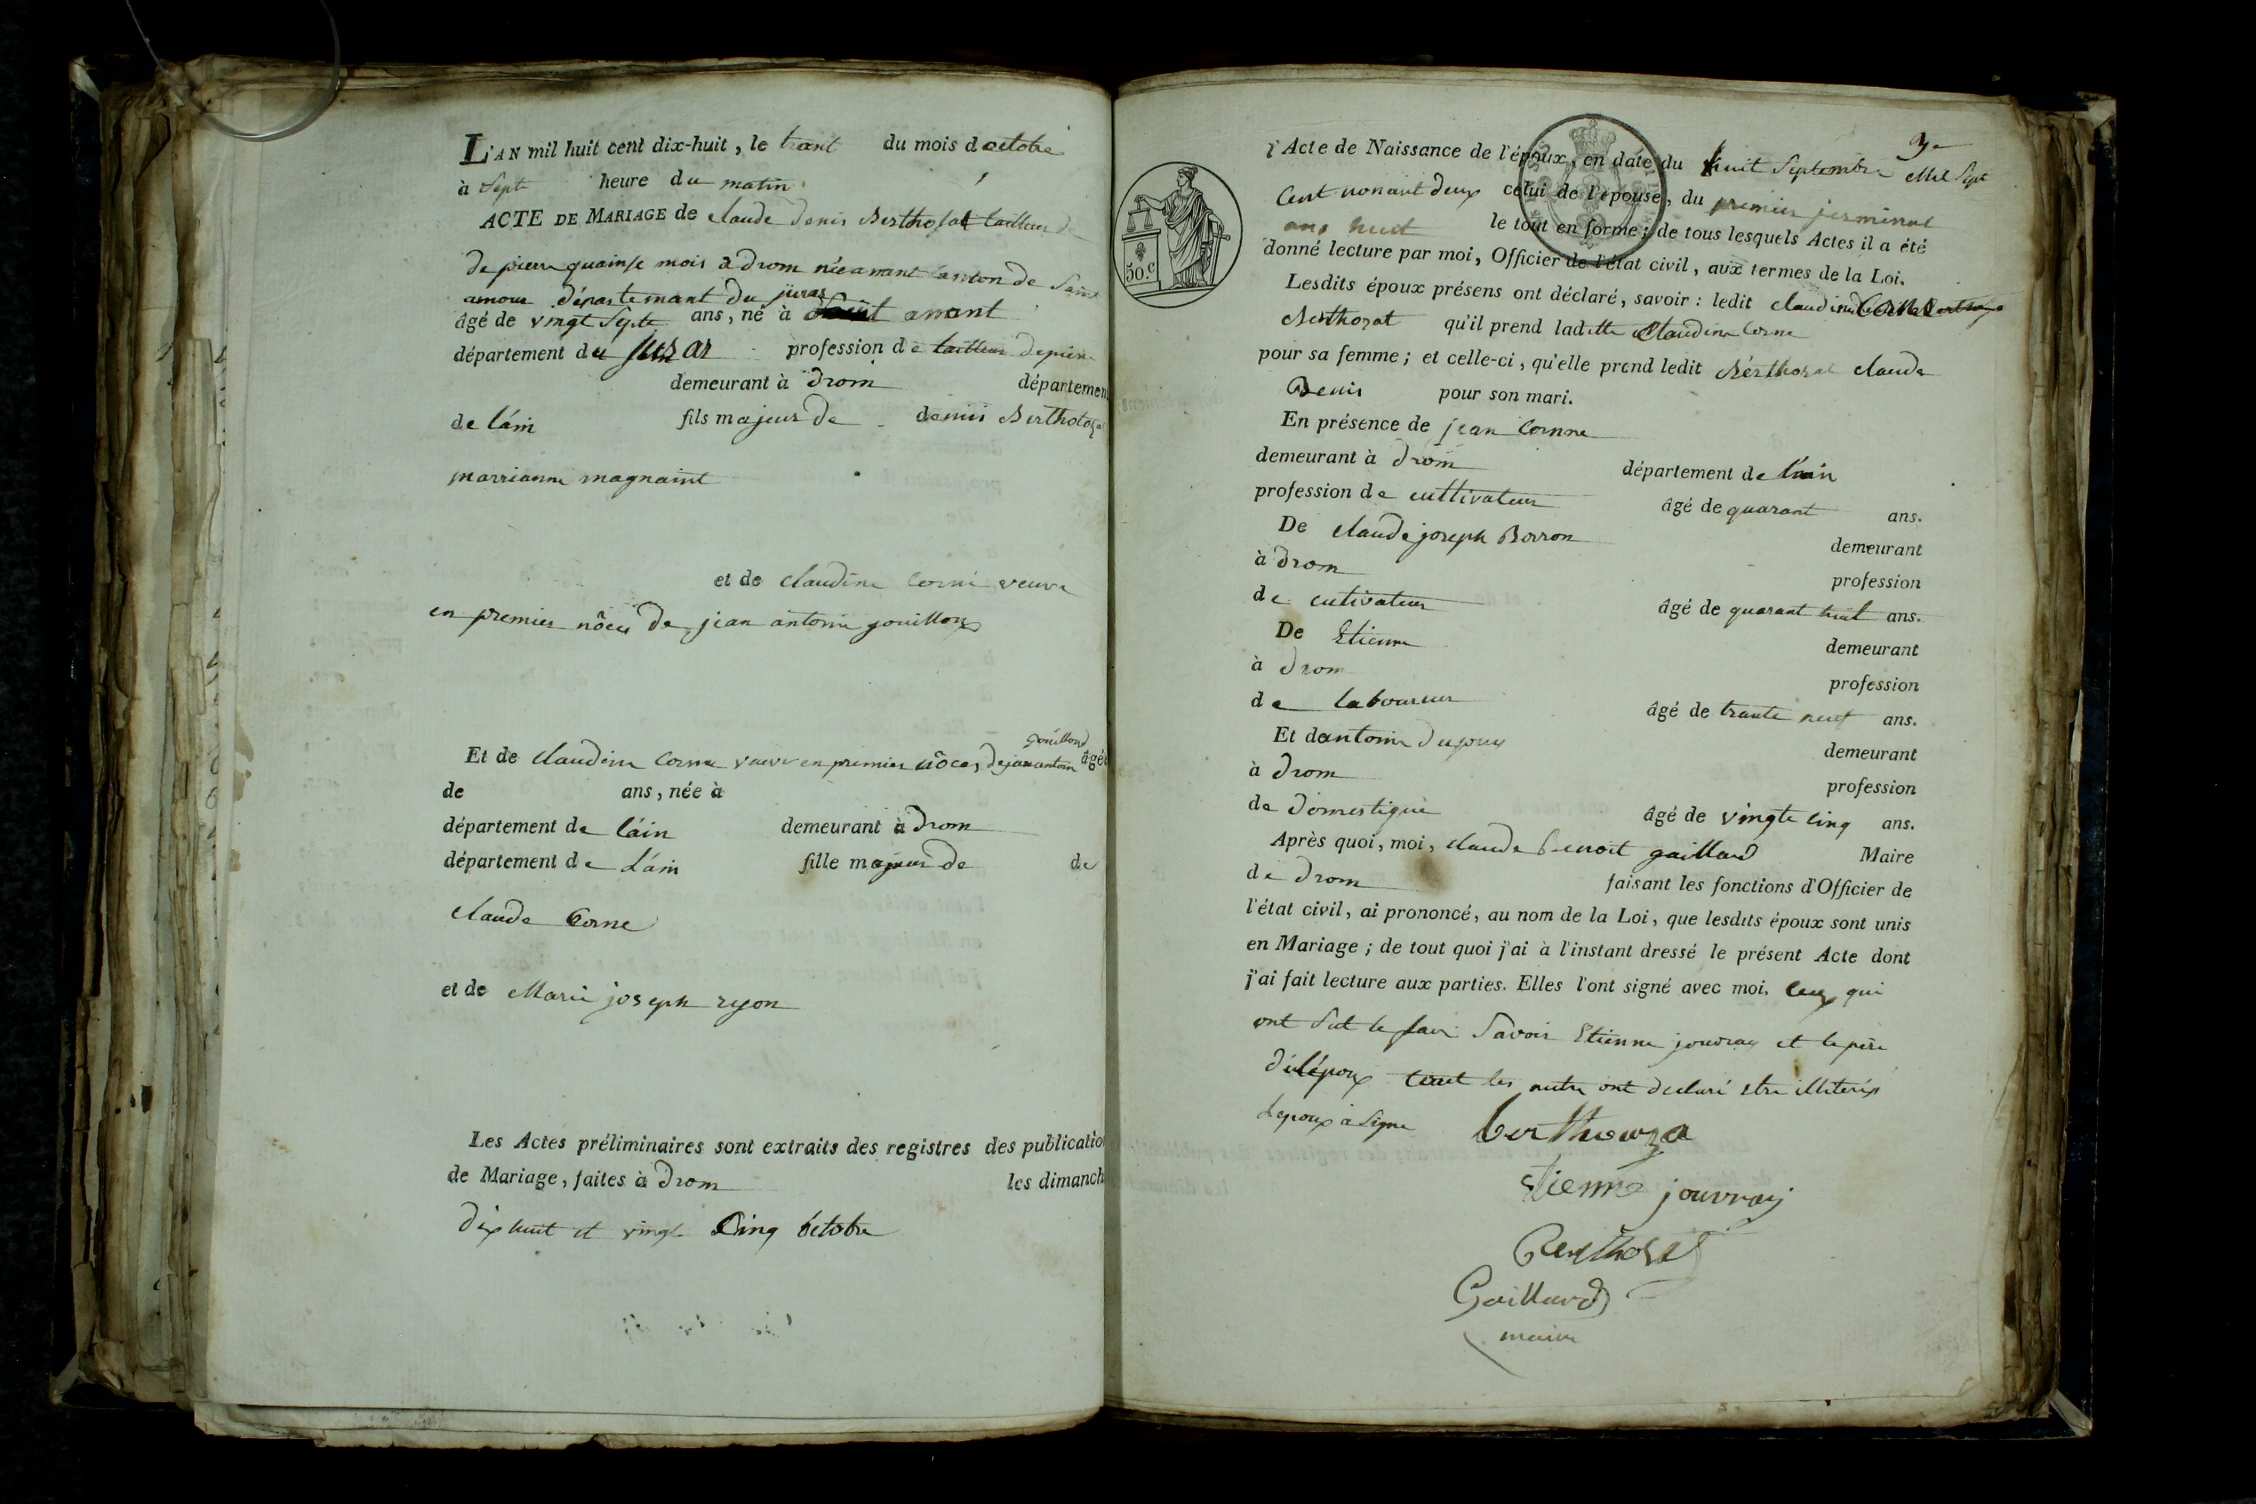 L'AN mil huit cent dix-huit, le trant du mois doctobre
à Septe heure du matin
ACTE DE MARIAGE de claude denis Berthozat tailleur de
de pierre quainse mois a drom née amant canton de Saint
amour départemant du juras
âgé de vingt Septe ans, né à amant
département du juzar profession de tailleur de pierre
demeurant à drom département
de láin fils majeur de denis Bertholoza
marrianne magnaint
et de claudine Corne veuve
en premier nôces de jean antoine gouilloux
gouilloud
Et de claudine Corne veuve en premier nôces de jean antoin âgée
de ans, née à
département de láin demeurant à drom
département de Láin fille majeur de de
claude Corne
et de Marie joseph ryon
Les Actes préliminaires sont extraits des registres des publicatio
de Mariage, faites à drom les dimanch
dix huit et vingt Cinq octobre
l'Acte de Naissance de l'époux, en date du huit Septembre Mil Sept
Cent nonant deux celui de l'épouse, du premier jerminal
ans huit le tout en forme; de tous lesquels Actes il a été
donné lecture par moi, Officier de l'état civil, aux termes de la Loi.
50.c
Lesdits époux présens ont déclaré, savoir: ledit
Berthozat qu'il prend laditte Claudine Corne
pour sa femme; et celle-ci, qu'elle prend ledit Bérthozat claude
Denis pour son mari.
En présence de jean Cornne
demeurant à drom département de láin
profession de cultivateur âgé de quarant ans.
De claude joseph Borron demeurant
à drom profession
de cutivateur âgé de quarant huit ans.
De Etienne demeurant
à drom profession
de laboureur âgé de trante neuf ans.
Et dantoine dupuy demeurant
à drom profession
de domestique âgé de vingte cinq ans.
Après quoi, moi, claude Benoit gaillard Maire
de drom faisant les fonctions d'Officier de
l'état civil, ai prononcé, au nom de la Loi, que lesdits époux sont unis
en Mariage; de tout quoi j'ai à l'instant dressé le présent Acte dont
j'ai fait lecture aux parties. Elles l'ont signé avec moi. ceux qui
ont Sut le faire Savoir Etienne jouvray et le père
de lépoux tout les autre ont declaré etre illiterés
Lepoux a Signe berthouza
etienne jouvray
Berthozat
Gaillard
maire